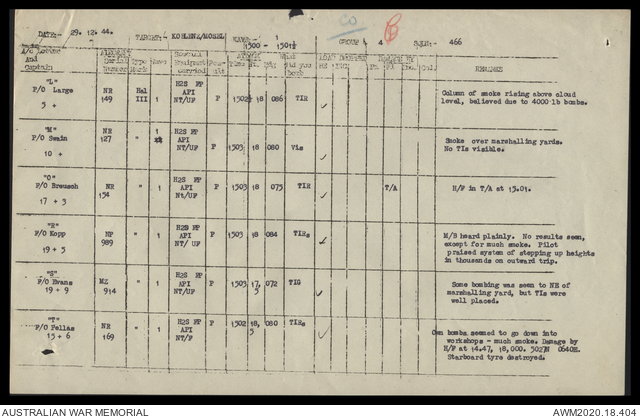 DATE:- 29.12.44. TARGET:- KOBLENZ/MOSEL WAVE:- 1 GROUP 4 SQDN:- 466
1500 - 1501½
A/C Letter And Captain
Serial Number
Type Mark
Wave
Special Equipment carried
What did you bomb
REMARKS
"L" P/O Large 5 + NR 149 Hal III 1 H2S FP API NT/UF P 1502½ 18 086 TIR ✓ Column of smoke rising above cloud
level, believed due to 4000 lb bombs.
"M" F/O Swain 10 + NR 127 " 1 H2S FP API NT/UF P 1503 18 080 Vis ✓ Smoke over marshalling yards.
No TIs visible.
"O" F/O Breusch 17 + 3 NR 154 " 1 H2S FP API Nt/UF P 1503 18 075 TIR T/A H/F in T/A at 15.01.
"R" F/O Kopp 19 + 5 NP 989 " 1 H2S FP API NT/UF P 1503 18 084 TIRs ✓ M/B heard plainly. No results seen,
except for much smoke. Pilot
praised system of stepping up heights
in thousands on outward trip.
"S" F/O Evans 19 + 9 MZ 914 " 1 H2S FP API NT/UF P 1503 17,5 072 TIG ✓ Some bombing was seen to NE of
marshalling yard, but TIs were
well placed.
"T" F/O Fellas 15 + 6 NR 169 " 1 H2S FP API NT/F P 1502 18,5 080 TIRs ✓ Own bombs seemed to go down into
workshops - much smoke. Damage by
H/F at 14.47, 18,000. 5027N 0640E.
Starboard tyre destroyed.
AUSTRALIAN WAR MEMORIAL AWM2020.18.404